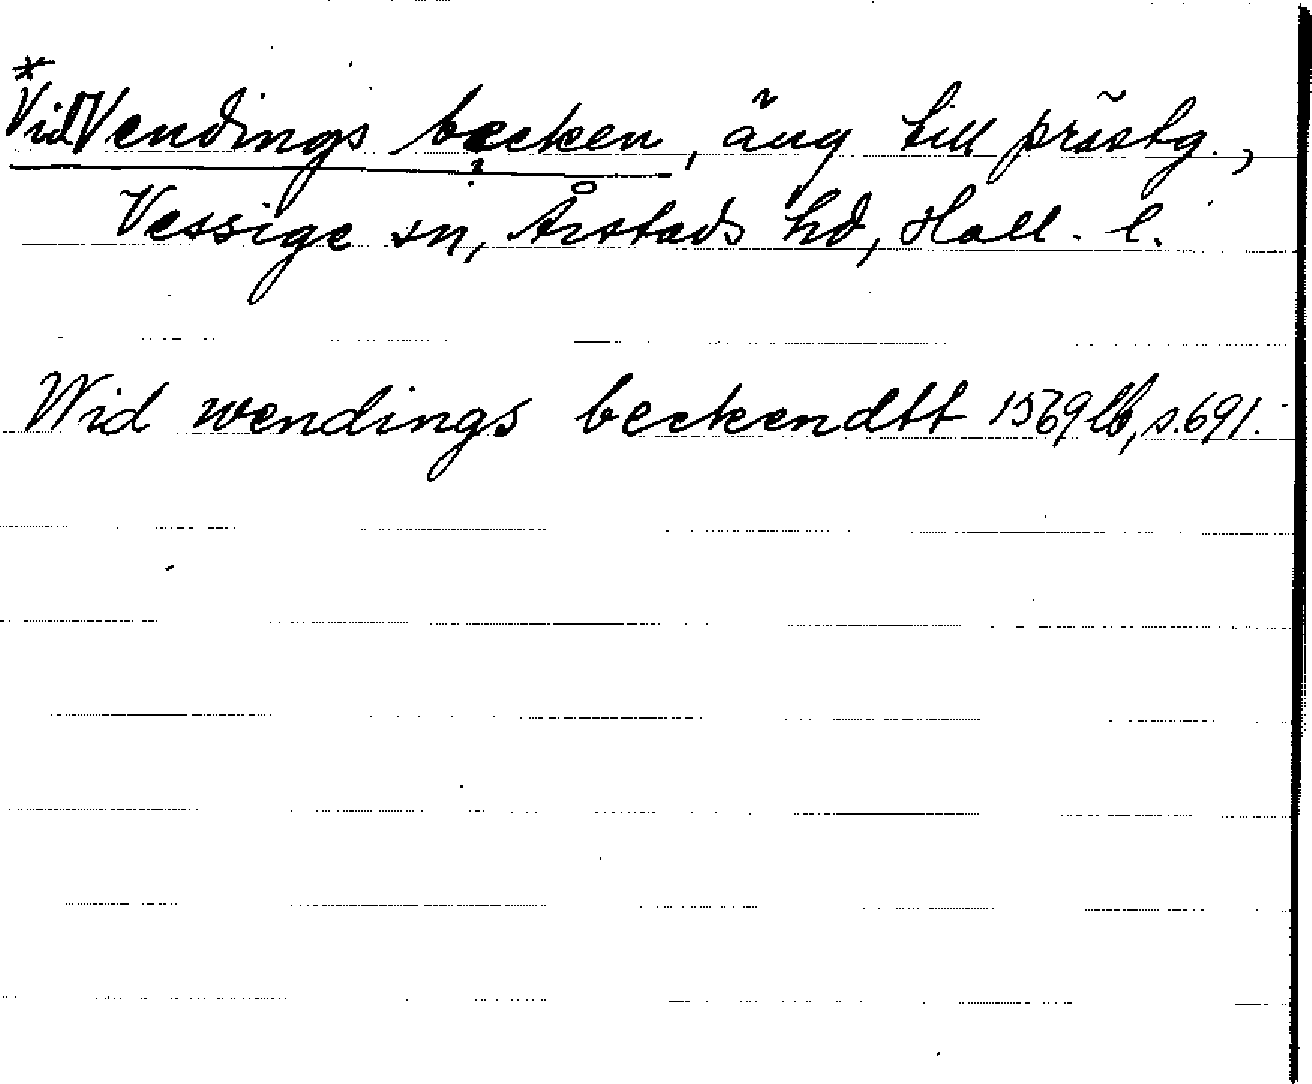 *Vid Vendings becken, äng till prästg.,
Vessige sn, Årstads hd, Hall. l.
Wid wendings beckendtt 1569 lb, s. 691.